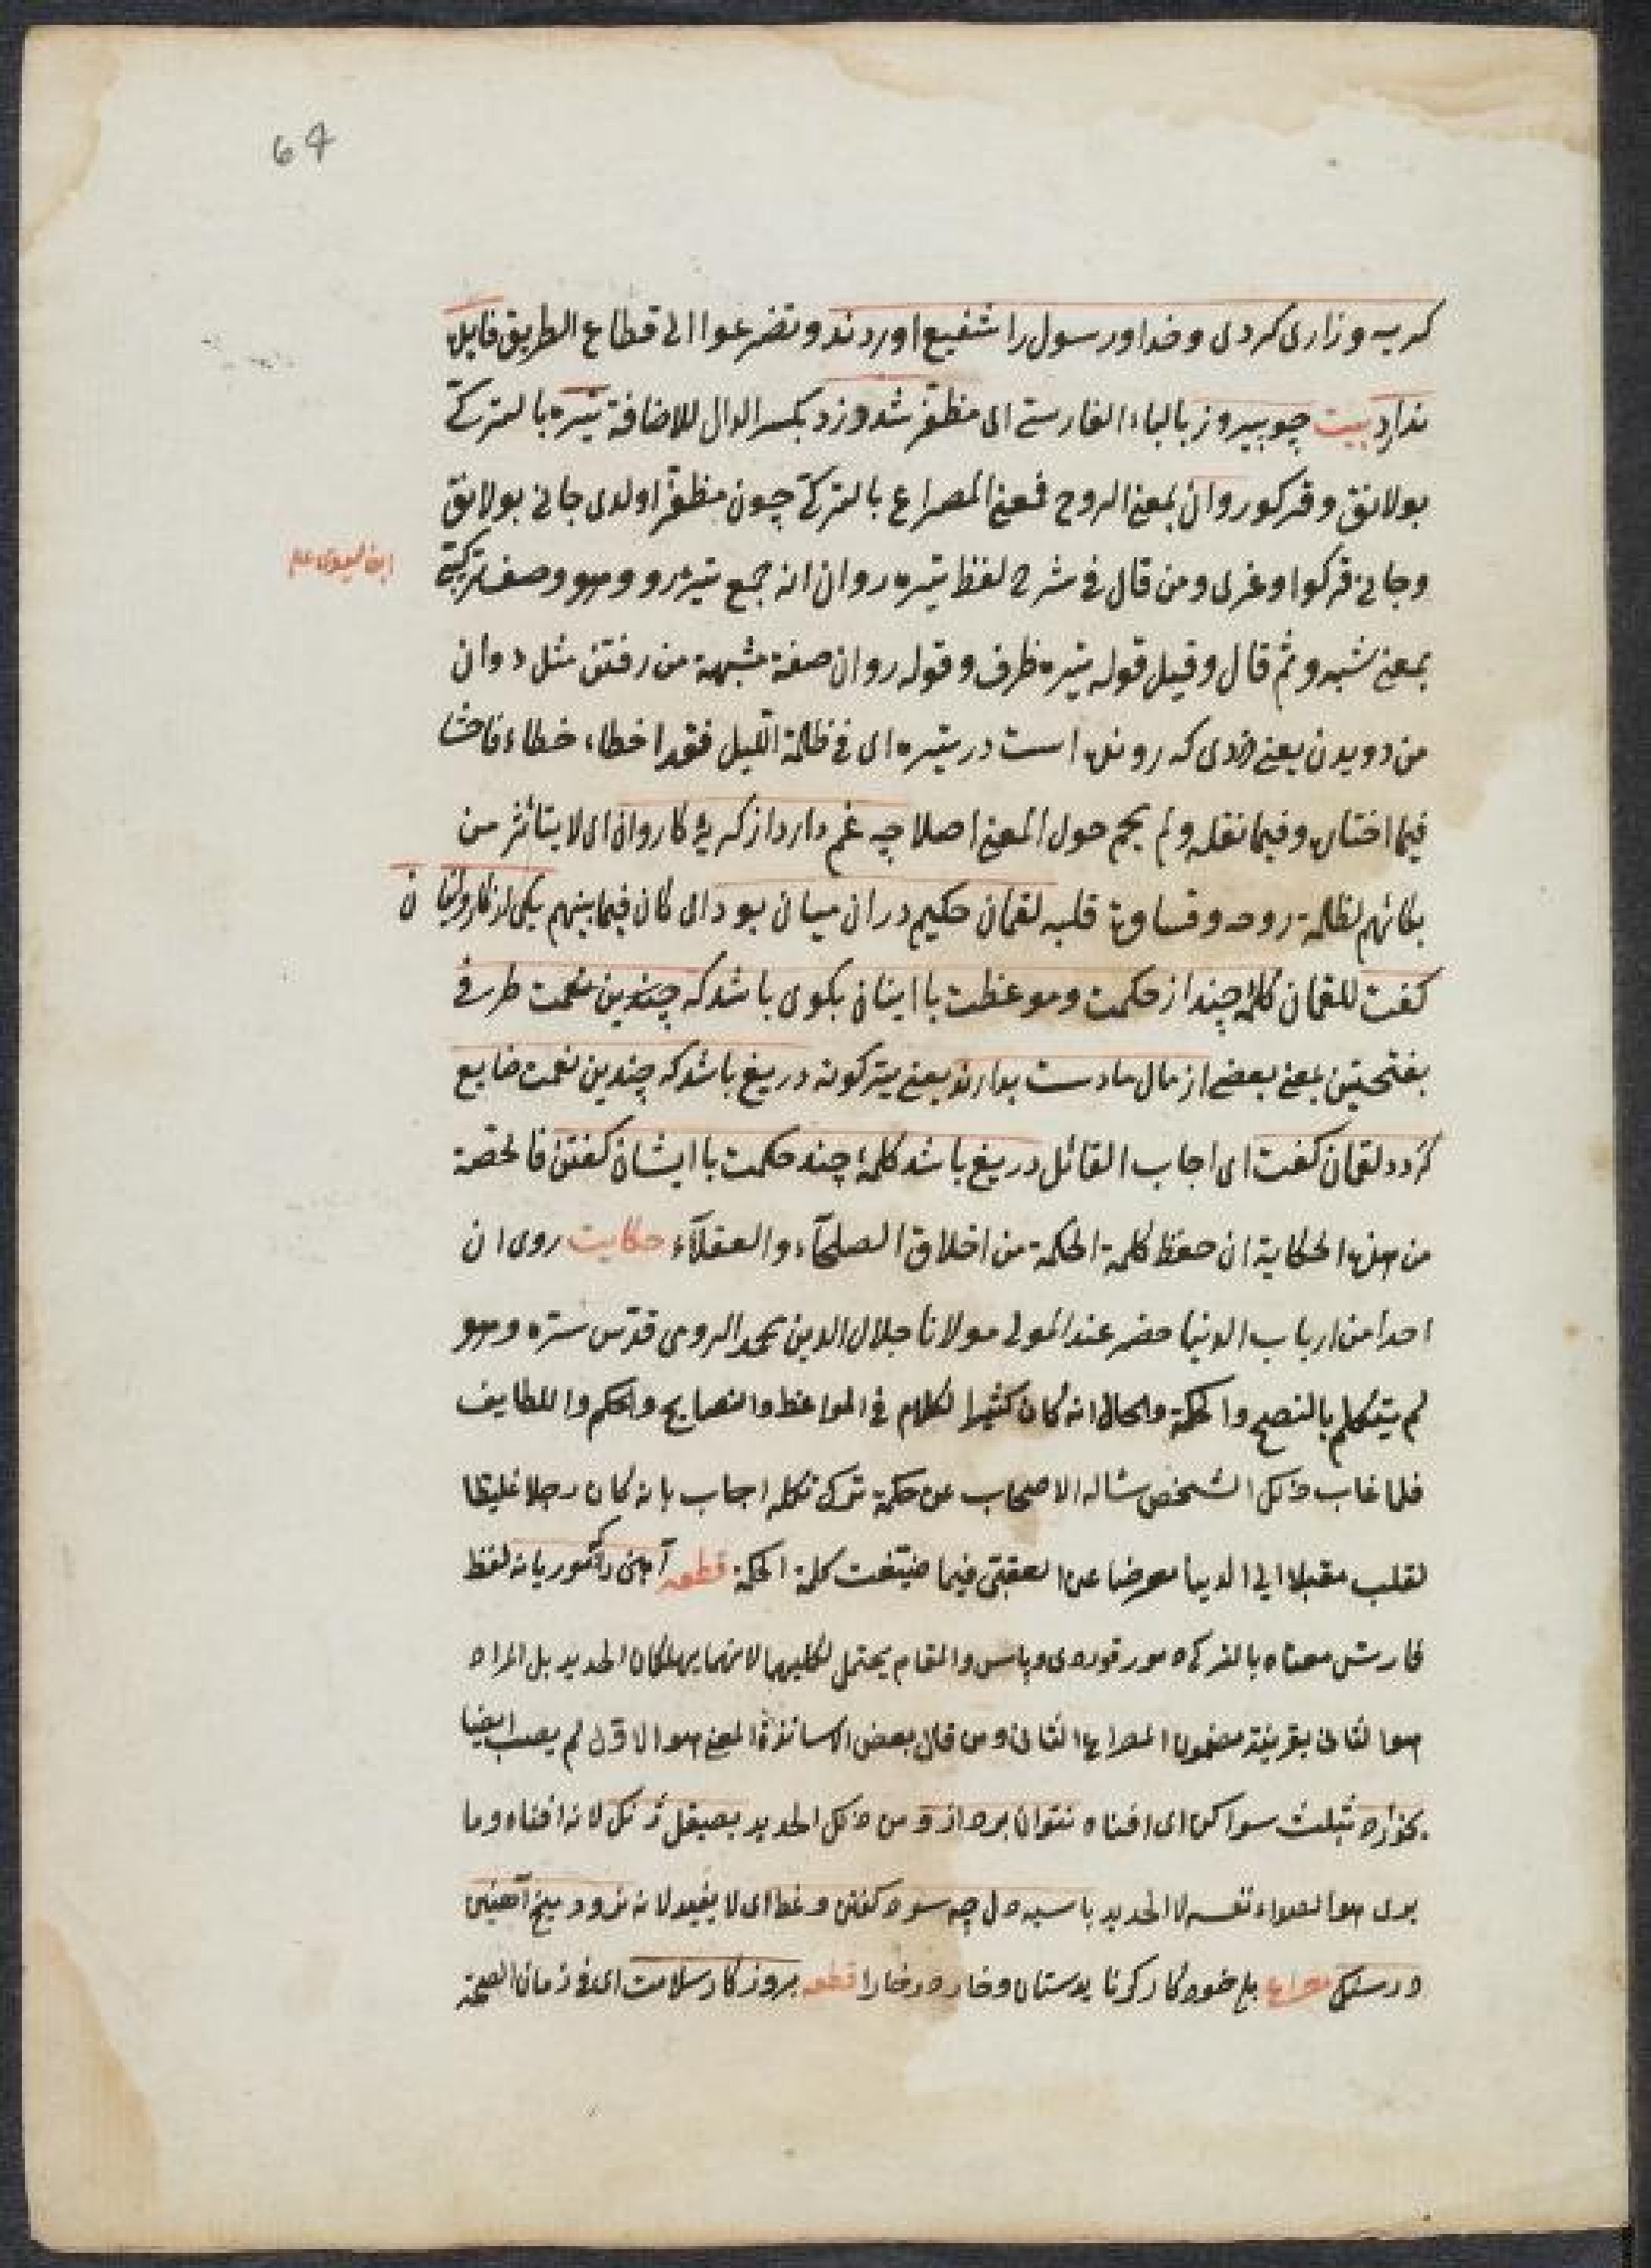 64
كريه وزارى كردى وخدا ورسول را شفيع اوردند وتضرعوا الى قطاع الطريق فايده
نداد بيت چو پيروز بالباء الفارسى اى مظفر شد دزد بكسر الدال للاضافة تيره بالتركى
بولانق وقركور روان بمعنى الروح فمعنى المصراع بالتركى چون مظفر اولدى جانى بولانق
وجانى قركوا وغرى ومن قال فى شرح لفظ تيره روان انه جمع تيره رو وهو وصف تركيبى
بمعنى شبرو ثم قال وقيل قوله تيره ظرف وقوله روان صفة مشبهة من رفتن مثل دوان
من دويدن يعنى دزدى كه رونده است در تيره اى فى ظلمة الليل فقد اخطاء خطاء فاحشا
فيما اختاره وفيما نقله ولم يحم حول المعنى اصلا چه غم دارد از كريه كاروان اى لا يتأثر من
بكائهم لظلمة روحه وقساوة قلبه لقمان حكيم دران ميان بود اى كان فيما بينهم يكى از كاروانيان
كفت للقمان كلمه چند از حكمت وموعظت با اينان بكوى باشد كه چندين نعمت طرفى
بفتحتين بمعنى بعضى از مال ما دست بدارند يعنى يتركونه دريغ باشد كه چندين نعمت ضايع
كردد لقمان كفت اى اجاب القائل دريغ باشد كلمهٔ چند حكمت با ايشان كفتن فالحصة
من هذه الحكاية ان حفظ كلمة الحكمة من اخلاق الصلحآء والعقلآء حكايت روى ان
احدا من ارباب الدنيا حضر عند المولى مولانا جلال الدين محمد الرومى قدّس سره وهو
لم يتكلم بالنصح والحكمة والحال انه كان كثير الكلام فى المواعظ والنصايح والحكم واللطايف
فلما غاب ذلك الشخص سئاله الاصحاب عن حكمة ترك تكلمه اجاب بانه كان رجلا غليظا
لقلب مقبلا الى الدنيا معرضا عن العقبى فيما ضيعت كلمة الحكمة قطعه آهنى را كه موريانه لفظ
فارسى معناه بالتركى ده مور قوردى وپاس والمقام يحتمل لكليهما لانهما يهلكان الحديد بل المراد
هو الثانى بقرينة مضمون المصراع الثانى ومن قال بعض الاساتذة المعنى هو الاول لم يصب ايضا
بخورد سواكن اى افناه نتوان برد ازو من ذلك الحديد بصيقل زنك لانه افناه وما
بقى هو الصداء نفسه لا الحديد با سيه دل چه سود كفتن وعظ اى لا يفيد لانه نرود ميخ آهنين
در سنك مصراع خود كار كرنايد وخار در خارا قطعه بروزكار سلامت اى فى زمان الصحة